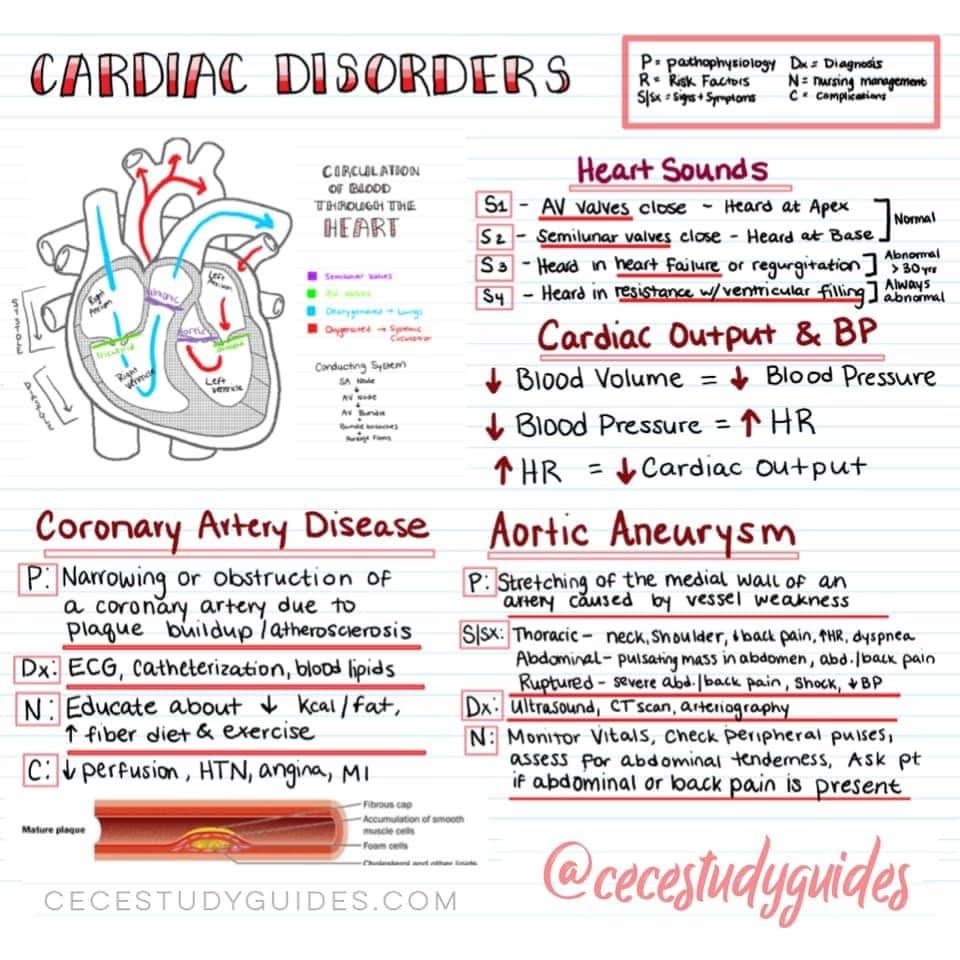 CARDIAC DISORDERS
P = pathophysiology
R = Risk Factors
S|Sx = Signs + Symptoms
Dx = Diagnosis
N = nursing management
C = complications
CIRCULATION
OF BLOOD
THROUGH THE
HEART
Semilunar Valves
AV Valves
Deoxygenated → Lungs
Oxygenated → Systemic
Circulation
Conducting System
SA Node
↓
AV Node
↓
AV Bundle
↓
Bundle branches
↓
Right
Atrium
Left
Atrium
Aortic
Tricuspid
Right
Ventricle
Left
Ventricle
Heart Sounds
S1 - AV valves close - Heard at Apex
S2 - Semilunar valves close - Heard at Base
Normal
S3 - Heard in heart failure or regurgitation
Abnormal
> 30 yrs
S4 - Heard in resistance w/ventricular filling
Always
abnormal
Cardiac Output & BP
↓ Blood Volume = ↓ Blood Pressure
↓ Blood Pressure = ↑ HR
↑ HR = ↓ Cardiac output
Coronary Artery Disease
P: Narrowing or obstruction of
a coronary artery due to
plaque buildup/atherosclerosis
Dx: ECG, Catheterization, blood lipids
N: Educate about ↓ kcal/fat,
↑ fiber diet & exercise
C: ↓ perfusion, HTN, angina, MI
Mature plaque
Fibrous cap
Accumulation of smooth
muscle cells
Foam cells
Cholesterol and other lipids
CECESTUDYGUIDES.COM
Aortic Aneurysm
P: Stretching of the medial wall of an
artery caused by vessel weakness
S|Sx: Thoracic - neck, Shoulder, ↓back pain, ↑HR, dyspnea
Abdominal - pulsating mass in abdomen, abd./back pain
Ruptured - severe abd./back pain, Shock, ↓BP
Dx: Ultrasound, CT scan, arteriography
N: Monitor Vitals, Check peripheral pulses,
assess for abdominal tenderness, Ask pt
if abdominal or back pain is present
@cecestudyguides